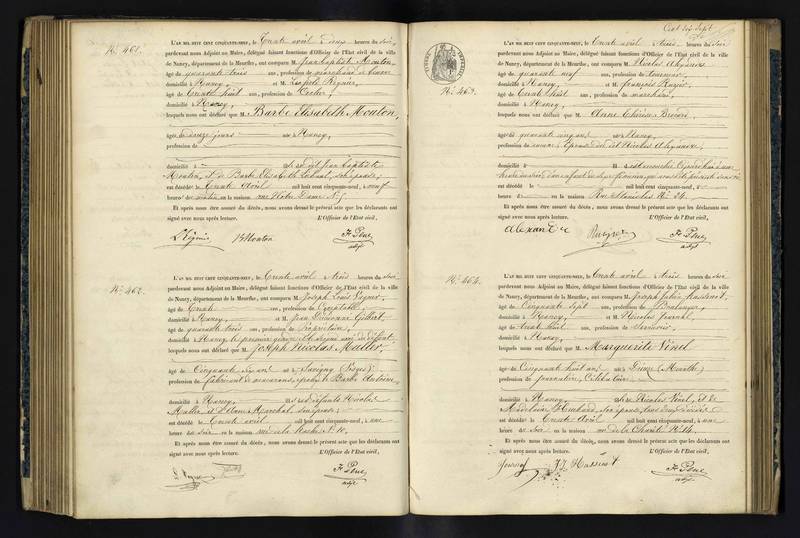 N.° 461.
L'AN MIL HUIT CENT CINQUANTE-NEUF, le Trente avril à deux heures du soir,
pardevant nous Adjoint au Maire, délégué faisant fonctions d'Officier de l'Etat civil de la ville
de Nancy, département de la Meurthe, ont comparu M. Jean baptiste Mouton,
âgé de quarante trois ans, profession de
domicilié à Nancy, et M. Léopold Régnier,
âgé de Trente huit ans, profession de Cocher,
domicilié à Nancy,
lesquels nous ont déclaré que M. Barbe Elisabeth Mouton,
âgée de douze jours née à Nancy,
profession de
domicilié à Jean baptiste
Mouton, et de Barbe Elisabeth son épouse,
est décédée le Trente Avril mil huit cent cinquante-neuf, à neuf
heures du matin, en la maison rue Notre Dame N.°
Et après nous être assuré du décès, nous avons dressé le présent acte que les déclarants ont
signé avec nous après lecture. L'Officier de l'Etat civil,
B Mouton
adjt
N.° 462.
L'AN MIL HUIT CENT CINQUANTE-NEUF, le Trente avril à trois heures du soir
pardevant nous Adjoint au Maire, délégué faisant fonctions d'Officier de l'Etat civil de la ville
de Nancy, département de la Meurthe, ont comparu M. Joseph Louis
âgé de Trente ans, profession de Comptable,
domicilié à Nancy, et M. Jean Gilbert
âgé de quarante trois ans, profession de Propriétaire,
domicilié à Nancy, le premier gendre et le second ami du défunt,
lesquels nous ont déclaré que M. Joseph Nicolas Muller,
âgé de Cinquante ans né à Savigny (Vosges)
profession de fabricant de macarons, époux de Barbe Antoine,
domicilié à Nancy, Nicolas
Muller et Marchal, son épouse,
est décédé le Trente avril mil huit cent cinquante-neuf, à une
heure du soir en la maison rue de la Hache N.° 10,
Et après nous être assuré du décès, nous avons dressé le présent acte que les déclarants ont
signé avec nous après lecture. L'Officier de l'Etat civil,
adjt
Cent dix sept
N.° 463.
L'AN MIL HUIT CENT CINQUANTE-NEUF, le Trente avril à trois heures du soir
pardevant nous Adjoint au Maire, délégué faisant fonctions d'Officier de l'Etat civil de la ville
de Nancy, département de la Meurthe, ont comparu M. Nicolas Alexandre
âgé de quarante neuf ans, profession de Tourneur,
domicilié à Nancy, et M. françois
âgé de Trente huit ans, profession de marchand,
domicilié à Nancy,
lesquels nous ont déclaré que M. Anne Thérèse
âgée de quarante cinq ans née à Nancy,
profession de épouse dudit Nicolas Alexandre,
domicilié à
est décédée le mil huit cent cinquante-neuf, à
heure en la maison Rue Stanislas N.° 24.
Et après nous être assuré du décès, nous avons dressé le présent acte que les déclarants ont
signé avec nous après lecture. L'Officier de l'Etat civil,
alexandre
adjt
N.° 464.
L'AN MIL HUIT CENT CINQUANTE-NEUF, le Trente avril à trois heures du soir
pardevant nous Adjoint au Maire, délégué faisant fonctions d'Officier de l'Etat civil de la ville
de Nancy, département de la Meurthe, ont comparu M. Joseph Julien
âgé de Cinquante Sept ans, profession de Boulanger,
domicilié à Nancy, et M. Nicolas
âgé de Trente huit ans, profession de Serrurier,
domicilié à Nancy,
lesquels nous ont déclaré que M. Marguerite Vinel
âgée de Cinquante huit ans née à Dieuze (Meurthe)
profession de journalière, Célibataire,
domicilié à Nancy, Nicolas Vinel, et de
Madelaine son épouse, tous deux décédés
est décédée le Trente Avril mil huit cent cinquante-neuf, à une
heure du soir en la maison rue de la Charité N.° 14.
Et après nous être assuré du décès, nous avons dressé le présent acte que les déclarants ont
signé avec nous après lecture. L'Officier de l'Etat civil,
adjt